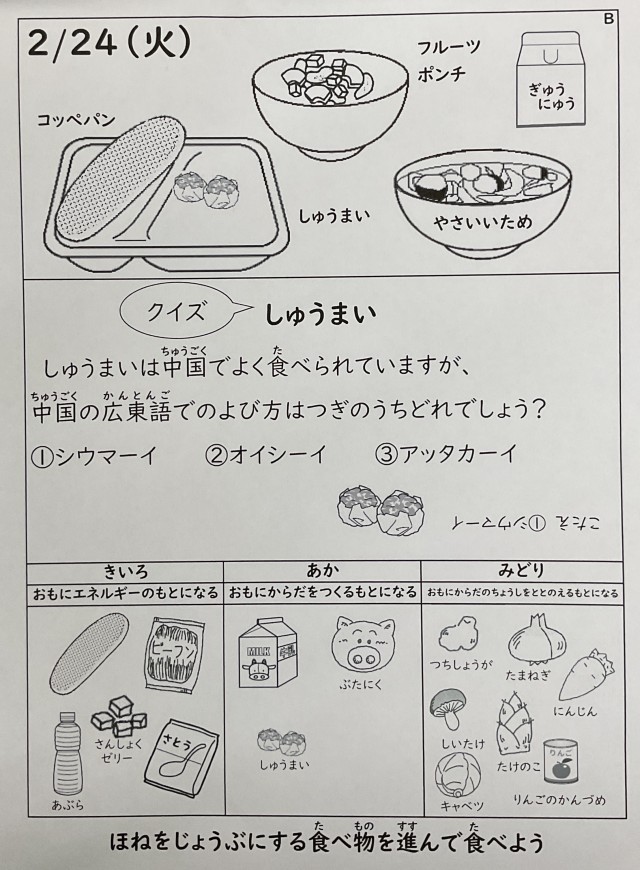 B
2/24(火)
フルーツ
ポンチ
ぎゅう
にゅう
コッペパン
しゅうまい
やさいいため
クイズ
しゅうまい
ちゅうごく た
しゅうまいは中国でよく食べられていますが、
ちゅうごく かんとんご
中国の広東語でのよび方はつぎのうちどれでしょう?
①シウマーイ ②オイシーイ ③アッタカーイ
こたえ ①シウマーイ
きいろ
おもにエネルギーのもとになる
あか
おもにからだをつくるもとになる
みどり
おもにからだのちょうしをととのえるもとになる
ビーフン
さんしょく
ゼリー
さとう
あぶら
MILK
ぶたにく
しゅうまい
つちしょうが
たまねぎ
にんじん
しいたけ
たけのこ
りんご
キャベツ
りんごのかんづめ
た もの すす た
ほねをじょうぶにする食べ物を進んで食べよう